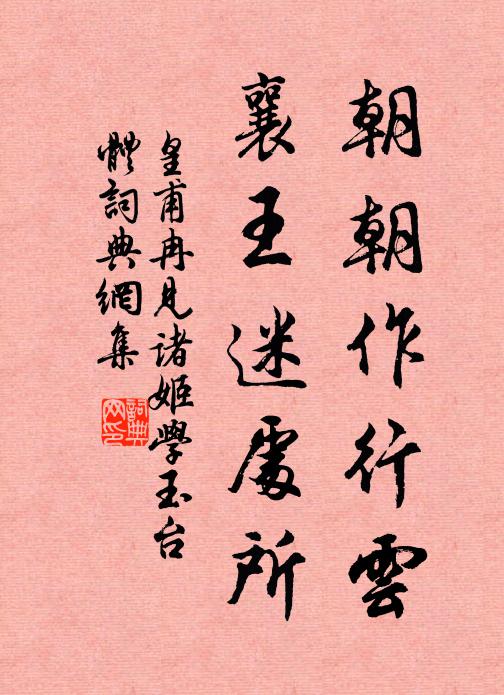 朝朝作行雲
襄王迷處所
皇甫冉見诸姬學玉台
體詞典網集
詞典
网印